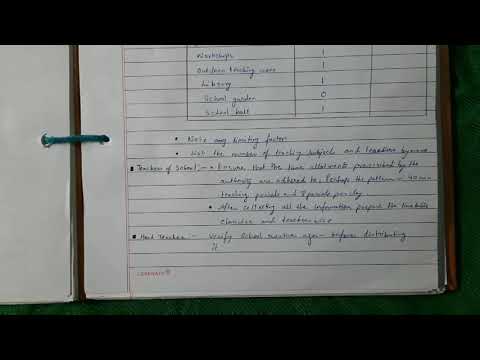 Workshops 1
Outdoor teaching area 1
Library 1
School garden 0
School hall 1
• Note any limiting factor
• List the number of teaching subjects and teachers by name
■ Teachers of School :- • Ensure that the time allotments prescribed by the
authority are adhered to. Perhaps the pattern is 40 min
teaching periods and 8 periods per day
• After collecting all the information prepare the timetable
classwise and teacherwise
■ Head Teacher :- Verify School routine again before distributing
it